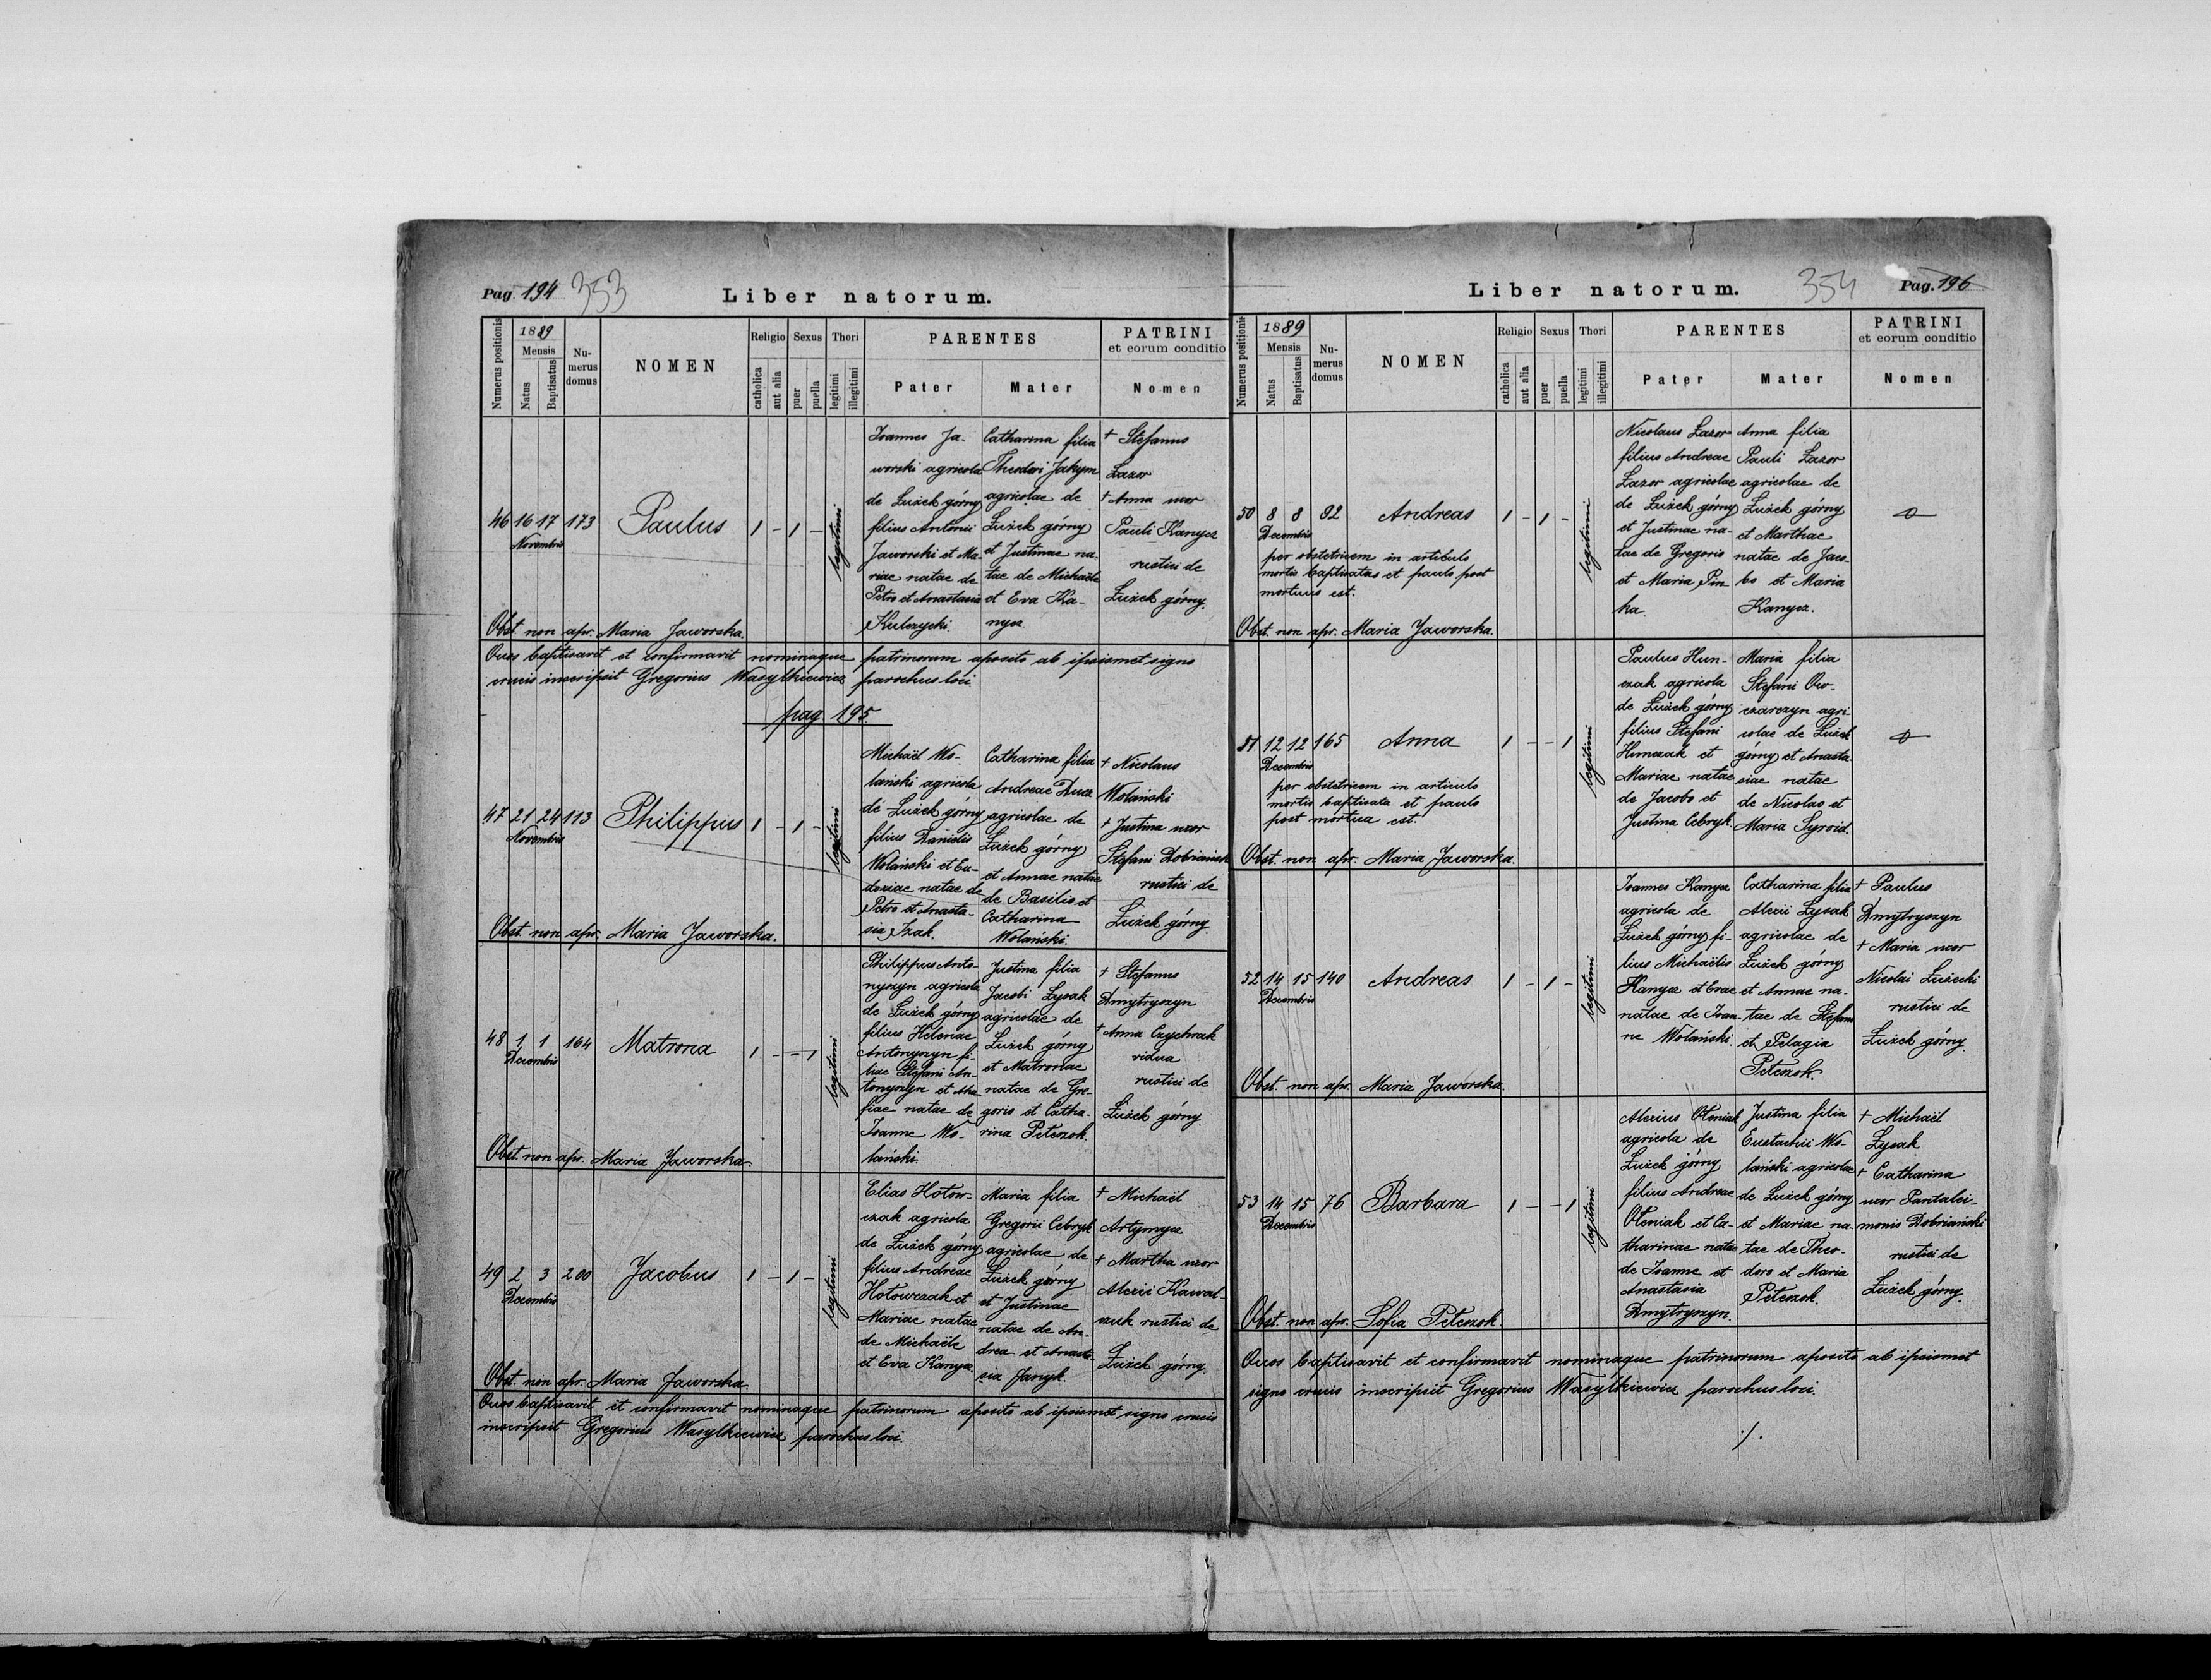 Pag. 194 353
Liber natorum.
Numerus positionis
1889
Mensis
Natus
Baptisatus
Nu-
merus
domus
NOMEN
Religio
catholica
aut alia
Sexus
puer
puella
Thori
legitimi
illegitimi
PARENTES
Pater
Mater
PATRINI
et eorum conditio
Nomen
46 16 17 173
Novembris
Paulus
1 - 1 -
legitimi
Ioannes Ja-
worski agricola
de Łużek górny
filius Antonii
Jaworski et Ma-
riae natae de
Petro et Anastasia
Kulczycki.
Catharina filia
Theodori Jakym
agricolae de
Łużek górny
et Justinae na-
tae de Michaële
et Eva Ka-
nycz
† Stefanus
Łazor
† Anna uxor
Pauli Kanycz
rustici de
Łużek górny.
Obst. non apr. Maria Jaworska.
Quos baptisavit et confirmavit nominaque patrinorum aposito ab ipsismet signo
crucis inscripsit Gregorius Wasylkiewicz parochus loci.
pag 195
47 21 24 113
Novembris
Philippus
1 - 1 -
legitimi
Michaël Wo-
lański agricola
de Łużek górny
filius Danielis
Wolański et Eu-
doxiae natae de
Petro et Anasta-
sia Izak.
Catharina filia
Andreae Ducz
agricolae de
Łużek górny
et Annae natae
de Basilio et
Catharina
Wolański.
† Nicolaus
Wolański
† Justina uxor
Stefani Dobriański
rustici de
Łużek górny.
Obst. non apr. Maria Jaworska.
48 1 1 164
Decembris
Matrona
1 - - 1
legitimi
Philippus Anto-
nyszyn agricola
de Łużek górny
filius Helenae
Antonyszyn fi-
liae Stefani An-
tonyszyn et Aha-
fiae natae de
Ioanne Wo-
lański.
Justina filia
Jacobi Łysak
agricolae de
Łużek górny
et Matronae
natae de Gre-
gorio et Catha-
rina Peteszok.
† Stefanus
Dmytryszyn
† Anna Czychrak
vidua
rustici de
Łużek górny.
Obst. non apr. Maria Jaworska.
49 2 3 200
Decembris
Jacobus
1 - 1 -
legitimi
Elias Hołow-
czak agricola
de Łużek górny
filius Andreae
Hołowczak et
Mariae natae
de Michaële
et Eva Kanycz
Maria filia
Gregorii Cebryk
agricolae de
Łużek górny
et Justinae
natae de An-
drea et Anasta-
sia Janyk.
† Michaël
Artymycz
† Martha uxor
Alexii Kawal-
czuk rustici de
Łużek górny
Obst. non apr. Maria Jaworska.
Quos baptisavit et confirmavit nominaque patrinorum aposito ab ipsismet signo crucis
inscripsit Gregorius Wasylkiewicz parochus loci.
Liber natorum.
354 Pag. 196
Numerus positionis
1889
Mensis
Natus
Baptisatus
Nu-
merus
domus
NOMEN
Religio
catholica
aut alia
Sexus
puer
puella
Thori
legitimi
illegitimi
PARENTES
Pater
Mater
PATRINI
et eorum conditio
Nomen
50 8 8 92
Decembris
Andreas
1 - 1 -
legitimi
per obstetricem in artibulo
mortis baptisatus et paulo post
mortuus est.
Nicolaus Łazor
filius Andreae
Łazor agricolae
de Łużek górny
et Justinae na-
tae de Gregorio
et Maria Pin-
ka.
Anna filia
Pauli Łazor
agricolae de
Łużek górny
et Marthae
natae de Jaco-
bo et Maria
Kanycz.
Obst. non apr. Maria Jaworska.
51 12 12 165
Decembris
Anna
1 - - 1
legitimi
per obstetricem in articulo
mortis baptisata et paulo
post mortua est.
Paulus Hun-
czak agricola
de Łużek górny
filius Stefani
Hunczak et
Mariae natae
de Jacobo et
Justina Cebryk.
Maria filia
Stefani Ow-
czarczyn agri-
colae de Łużek
górny et Anasta-
siae natae
de Nicolao et
Maria Syroid.
Obst. non apr. Maria Jaworska.
52 14 15 140
Decembris
Andreas
1 - 1 -
legitimi
Ioannes Kanycz
agricola de
Łużek górny fi-
lius Michaëlis
Kanycz et Evae
natae de Ioan-
ne Wolański.
Catharina filia
Alexii Łysak
agricolae de
Łużek górny
et Annae na-
tae de Stefano
et Pelagia
Peteszok.
† Paulus
Dmytryszyn
† Maria uxor
Nicolai Łużecki
rustici de
Łużek górny.
Obst. non apr. Maria Jaworska.
53 14 15 76
Decembris
Barbara
1 - - 1
legitimi
Alexius Oleniak
agricola de
Łużek górny
filius Andreae
Oleniak et Ca-
tharinae natae
de Ioanne et
Anastasia
Dmytryszyn.
Justina filia
Eustachii Wo-
lański agricolae
de Łużek górny
et Mariae na-
tae de Theo-
doro et Maria
Peteszok.
† Michaël
Łysak
† Catharina
uxor Pantalei-
monis Dobriański
rustici de
Łużek górny.
Obst. non apr. Sofia Peteszok.
Quos baptisavit et confirmavit nominaque patrinorum aposito ab ipsismet
signo crucis inscripsit Gregorius Wasylkiewicz parochus loci.
./.